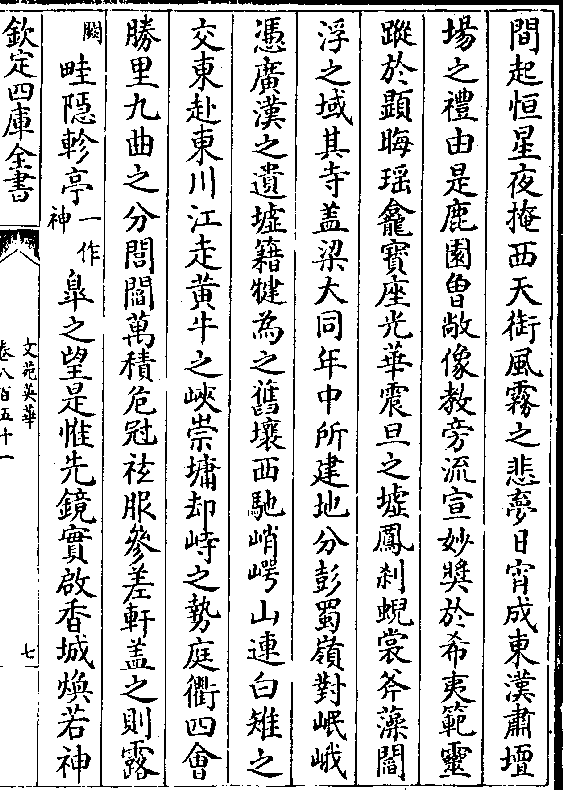 間起恒星夜掩西天銜風霧之悲夢日宵成東漢肅壇
場之禮由是鹿園曾敞像教旁流宣妙奬於希夷範靈
蹤於顯晦瑶龕寳座光華震旦之墟鳳刹蜺裳斧藻閻
浮之域其寺盖梁大同年中所建地分彭蜀嶺對岷峨
憑廣漢之遺墟籍犍為之舊壤西馳峭崿山連白雉之
交東赴東川江走黄牛之峽崇墉却峙之勢庭衢四會
勝里九曲之分閭閻萬積危冠袨服參差軒盖之則露
闕畦隠軫亭一作神臯之望是惟先鏡實啟香城煥若神
欽定四庫全書
文苑英華
卷八百五十一
七